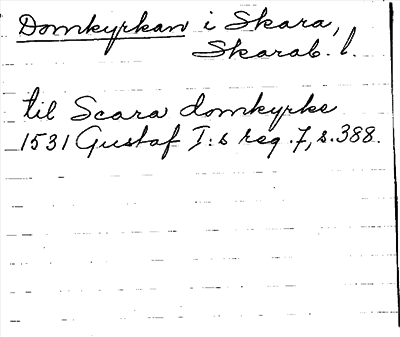 Domkyrkan i Skara,
Skarab. l.
til Scara domkyrke
1531 Gustaf I:s reg. 7, s. 388.